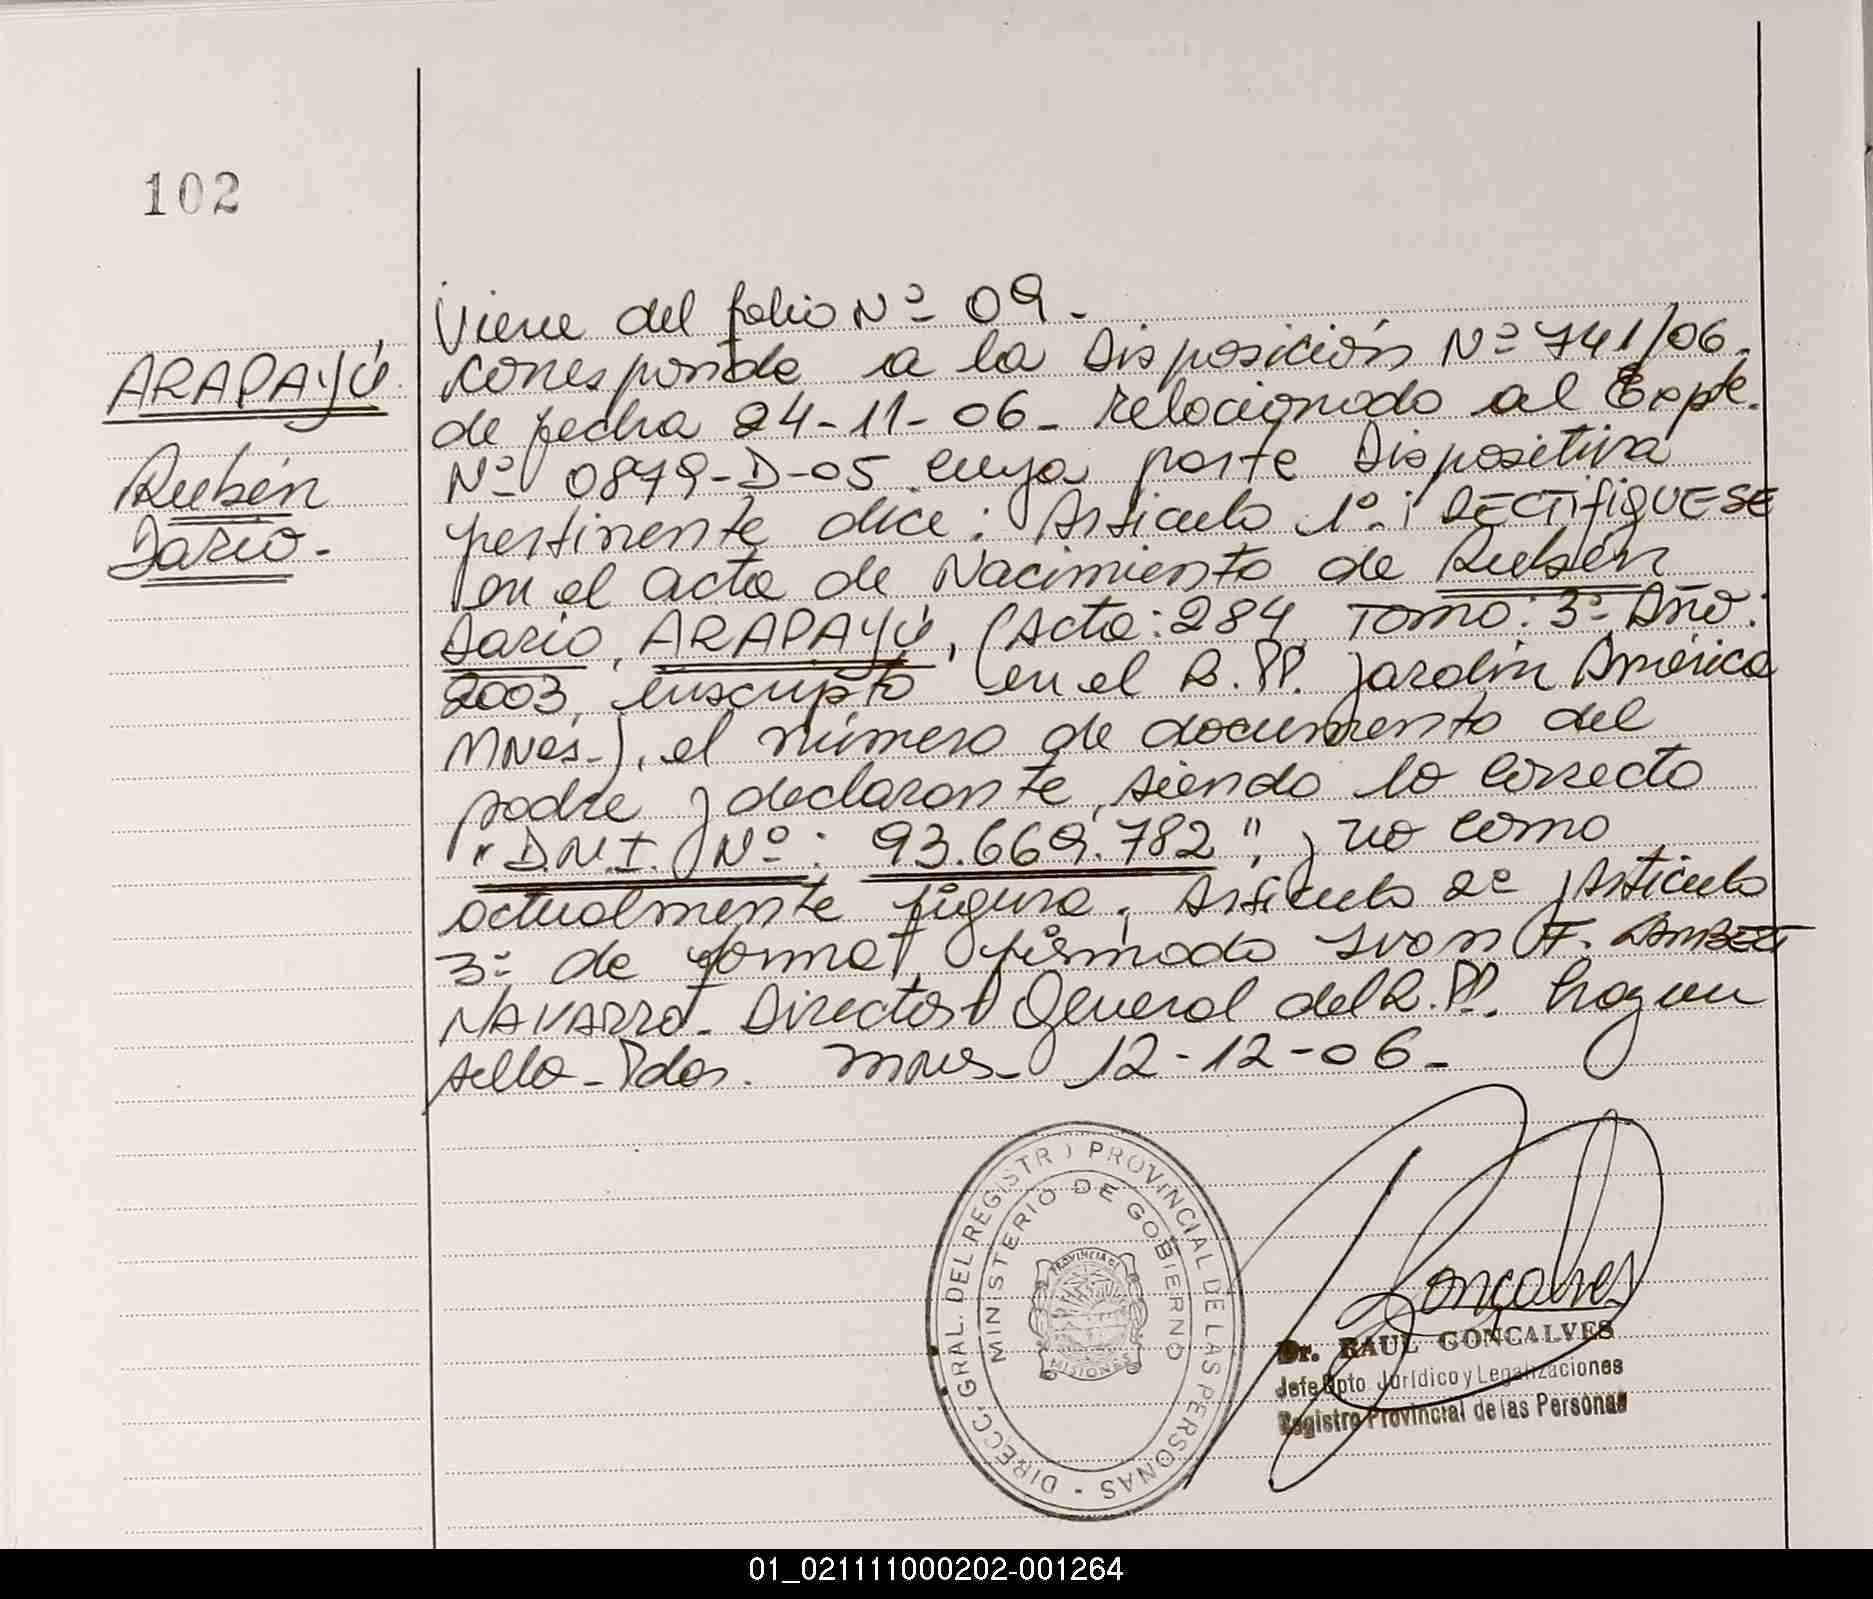 102
ARAPAYÚ
Rubén
Darío.-
Viene del folio Nº 09.-
Corresponde a la Disposición Nº 741/06.
de fecha 24-11-06- relacionado al Expte.
Nº 0879-D-05 cuya parte Dispositiva
pertinente dice: Artículo 1º: RECTIFIQUESE
en el acta de Nacimiento de Rubén
Darío, ARAPAYÚ, (Acta: 284, Tomo: 3º Año:
2003, inscripto en el R.PP. Jardín América
MNes.), el número de documento del
padre y declarante, siendo lo correcto
"D.N.I. Nº: 93.669.782", y no como
actualmente figura. Artículo 2º y Artículo
3º de forma, firmado Ivan F. AMBERT
NAVARRO. Director General del R.PP. hay un
sello - Pdas. Mnes- 12-12-06-
DIRECC. GRAL. DEL REGISTRO PROVINCIAL DE LAS PERSONAS -
MINISTERIO DE GOBIERNO
PROVINCIA DE
MISIONES
Gonçalves
Dr. RAUL GONCALVES
Jefe Dpto Jurídico y Legalizaciones
Registro Provincial de las Personas
01_021111000202-001264